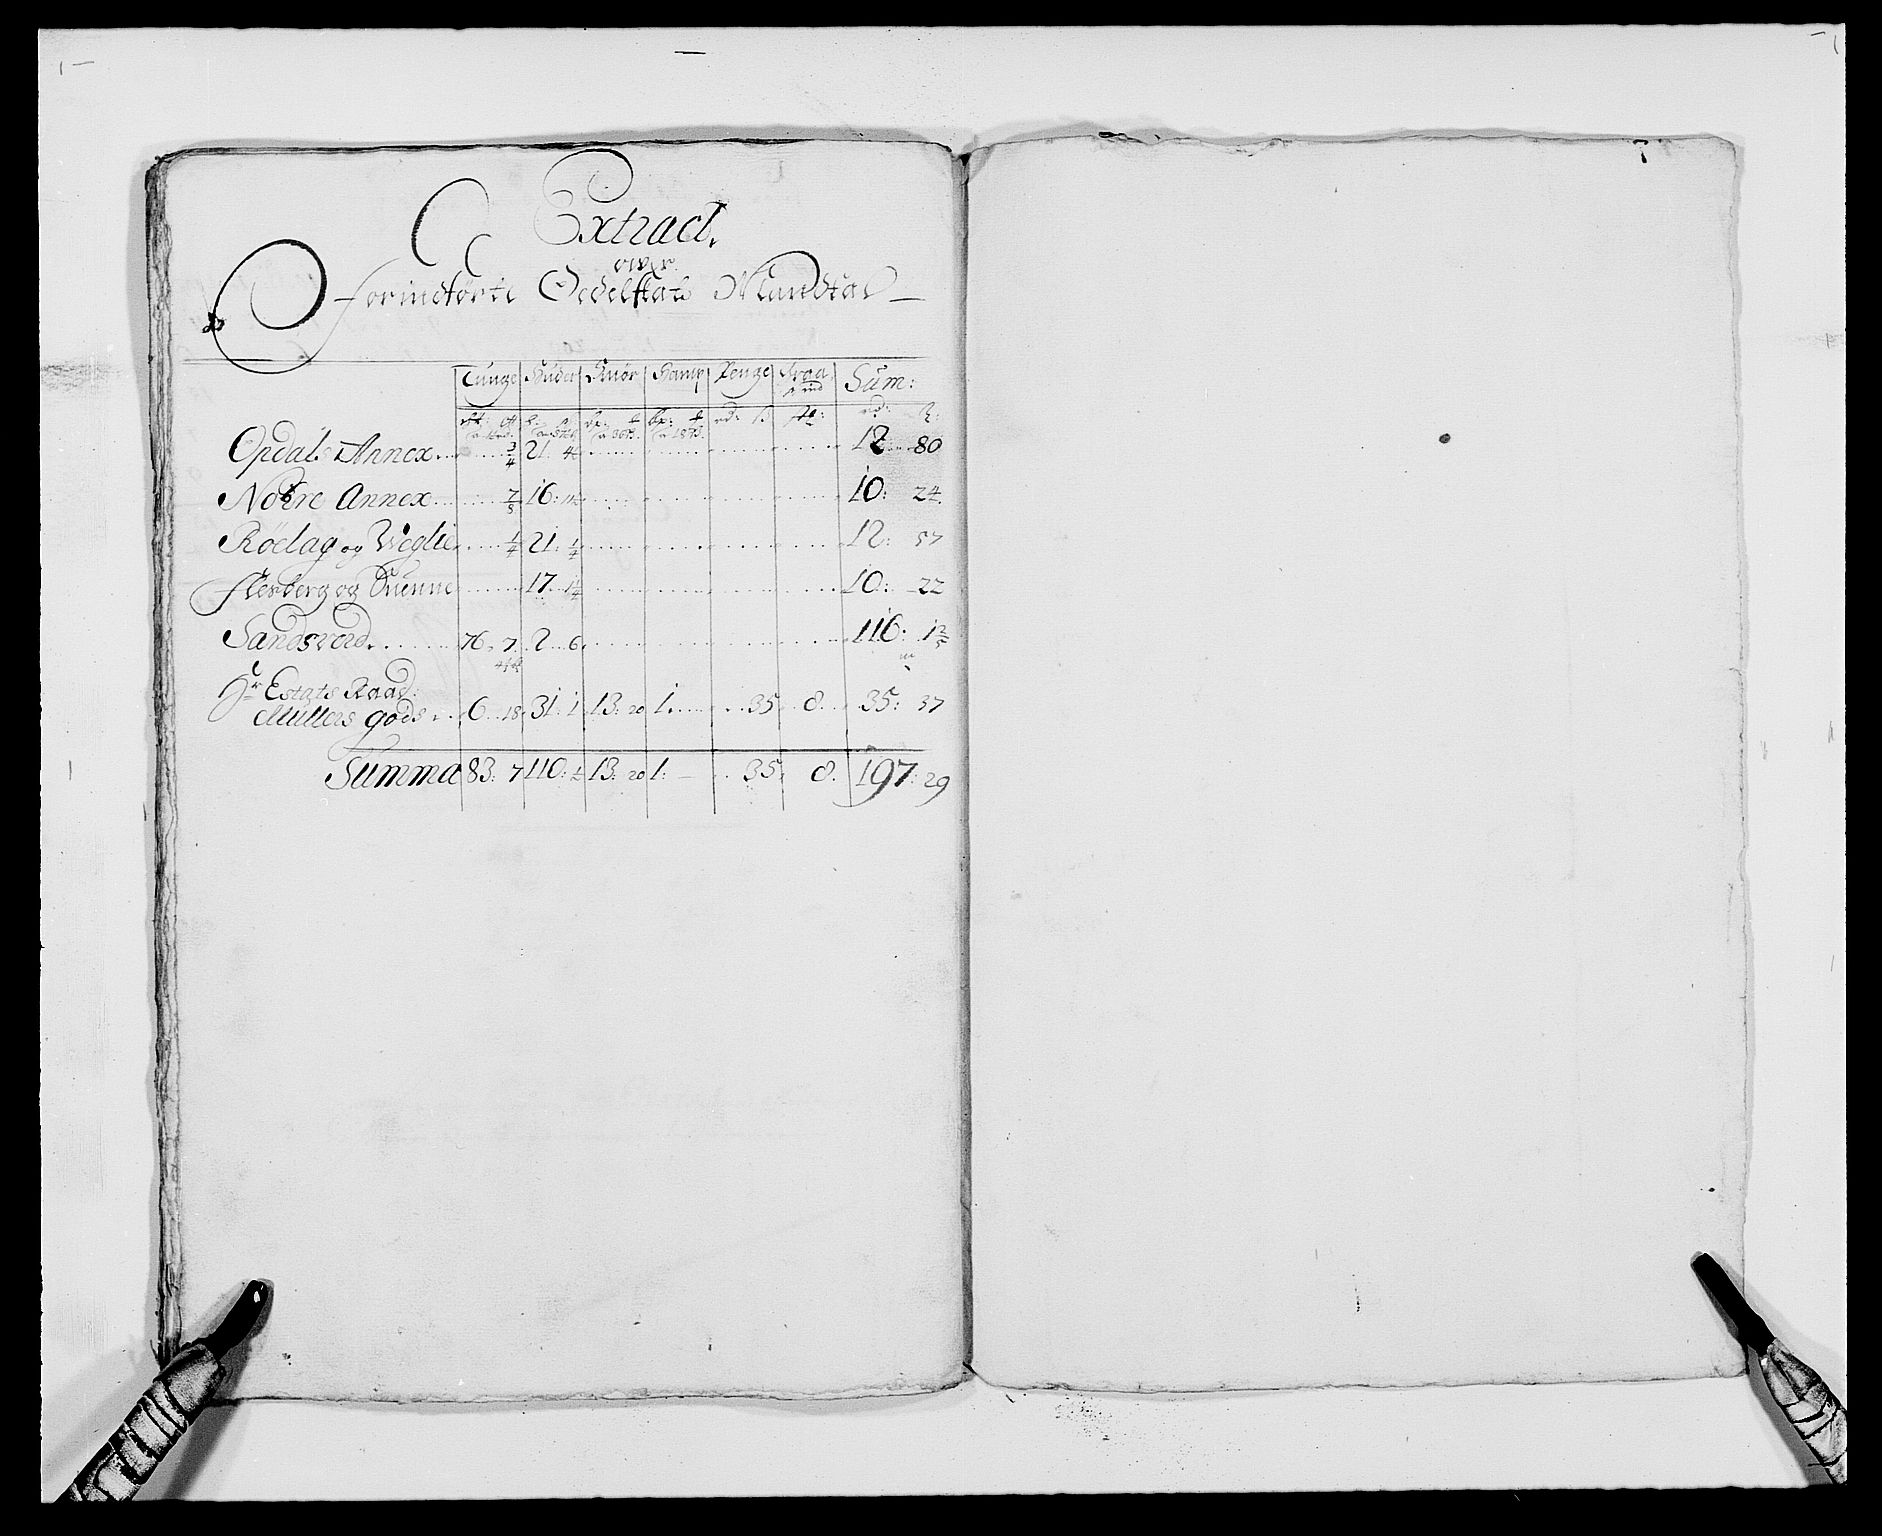 Extract,
over
forindførte Odelskats Mandtal
Tunge Huder Smør Kamp Penge Sum:
rd:
Opdals Annex 3/4 21: 12 80
Nobre Annex 7/8 16: 10: 24
Røelag og Weglie 1/4 21: 1/4 12: 57
flesberg og Suenne 17 10: 22
Sandsverd 76. 7 2 6 116:
Hr Estats Raad
Müllers gods 6 18 31 1 13: 20 1. 35 8. 35: 37
Summa 83: 7 110: 13: 20 1: 35 8. 197: 29